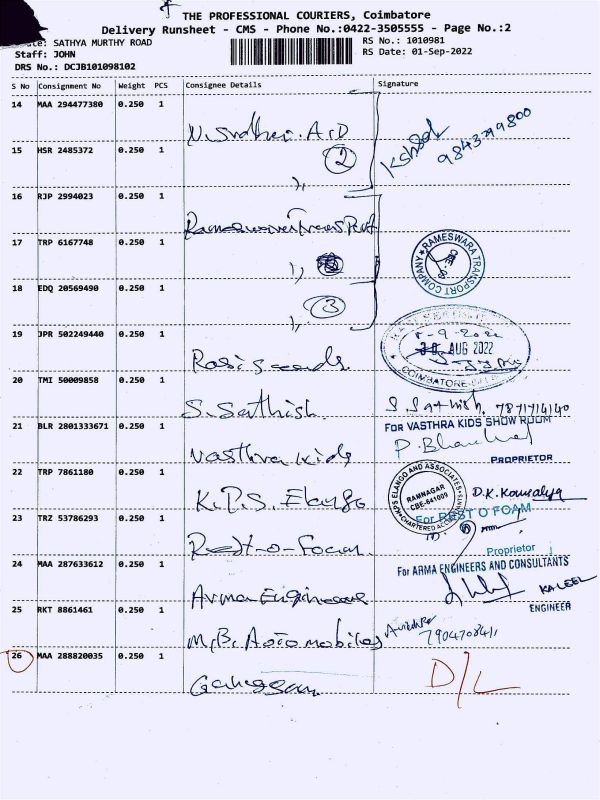 THE PROFESSIONAL COURIERS, Coimbatore
Delivery Runsheet - CMS - Phone No.:0422-3505555 - Page No.:2
SATHYA MURTHY ROAD
RS No.: 1010981
Staff: JOHN
RS Date: 01-Sep-2022
DRS No.: DCJB101098102
S No Consignment No Weight PCS Consignee Details Signature
14 MAA 294477380 0.250 1
15 HSR 2485372 0.250 1 2
9843799800
16 RJP 2994023 0.250 1 Rameswara Transport
17 TRP 6167748 0.250 1
RAMESWARA TRANSPORT COMPANY
18 EDQ 20569490 0.250 1 3
19 JPR 502249440 0.250 1 Rasi Seeds
30 AUG 2022
COIMBATORE
20 TMI 50009858 0.250 1 S. Sathish
S. Sathish. 7871714140
21 BLR 2801333671 0.250 1 Vasthra Kids
FOR VASTHRA KIDS SHOW ROOM
PROPRIETOR
22 TRP 7861180 0.250 1 K.P.S. Elango
KPS ELANGO AND ASSOCIATES
RAMNAGAR
CBE-641009
CHARTERED ACCOUNTANTS
D.K. Kousalya
23 TRZ 53786293 0.250 1 Rest-o-Foam
For REST O FOAM
Proprietor
24 MAA 287633612 0.250 1 Arma Engineers
For ARMA ENGINEERS AND CONSULTANTS
KALEEL
ENGINEER
25 RKT 8861461 0.250 1 M.B. Automobiles
7904708411
26 MAA 288820035 0.250 1 Ganesan
D/L